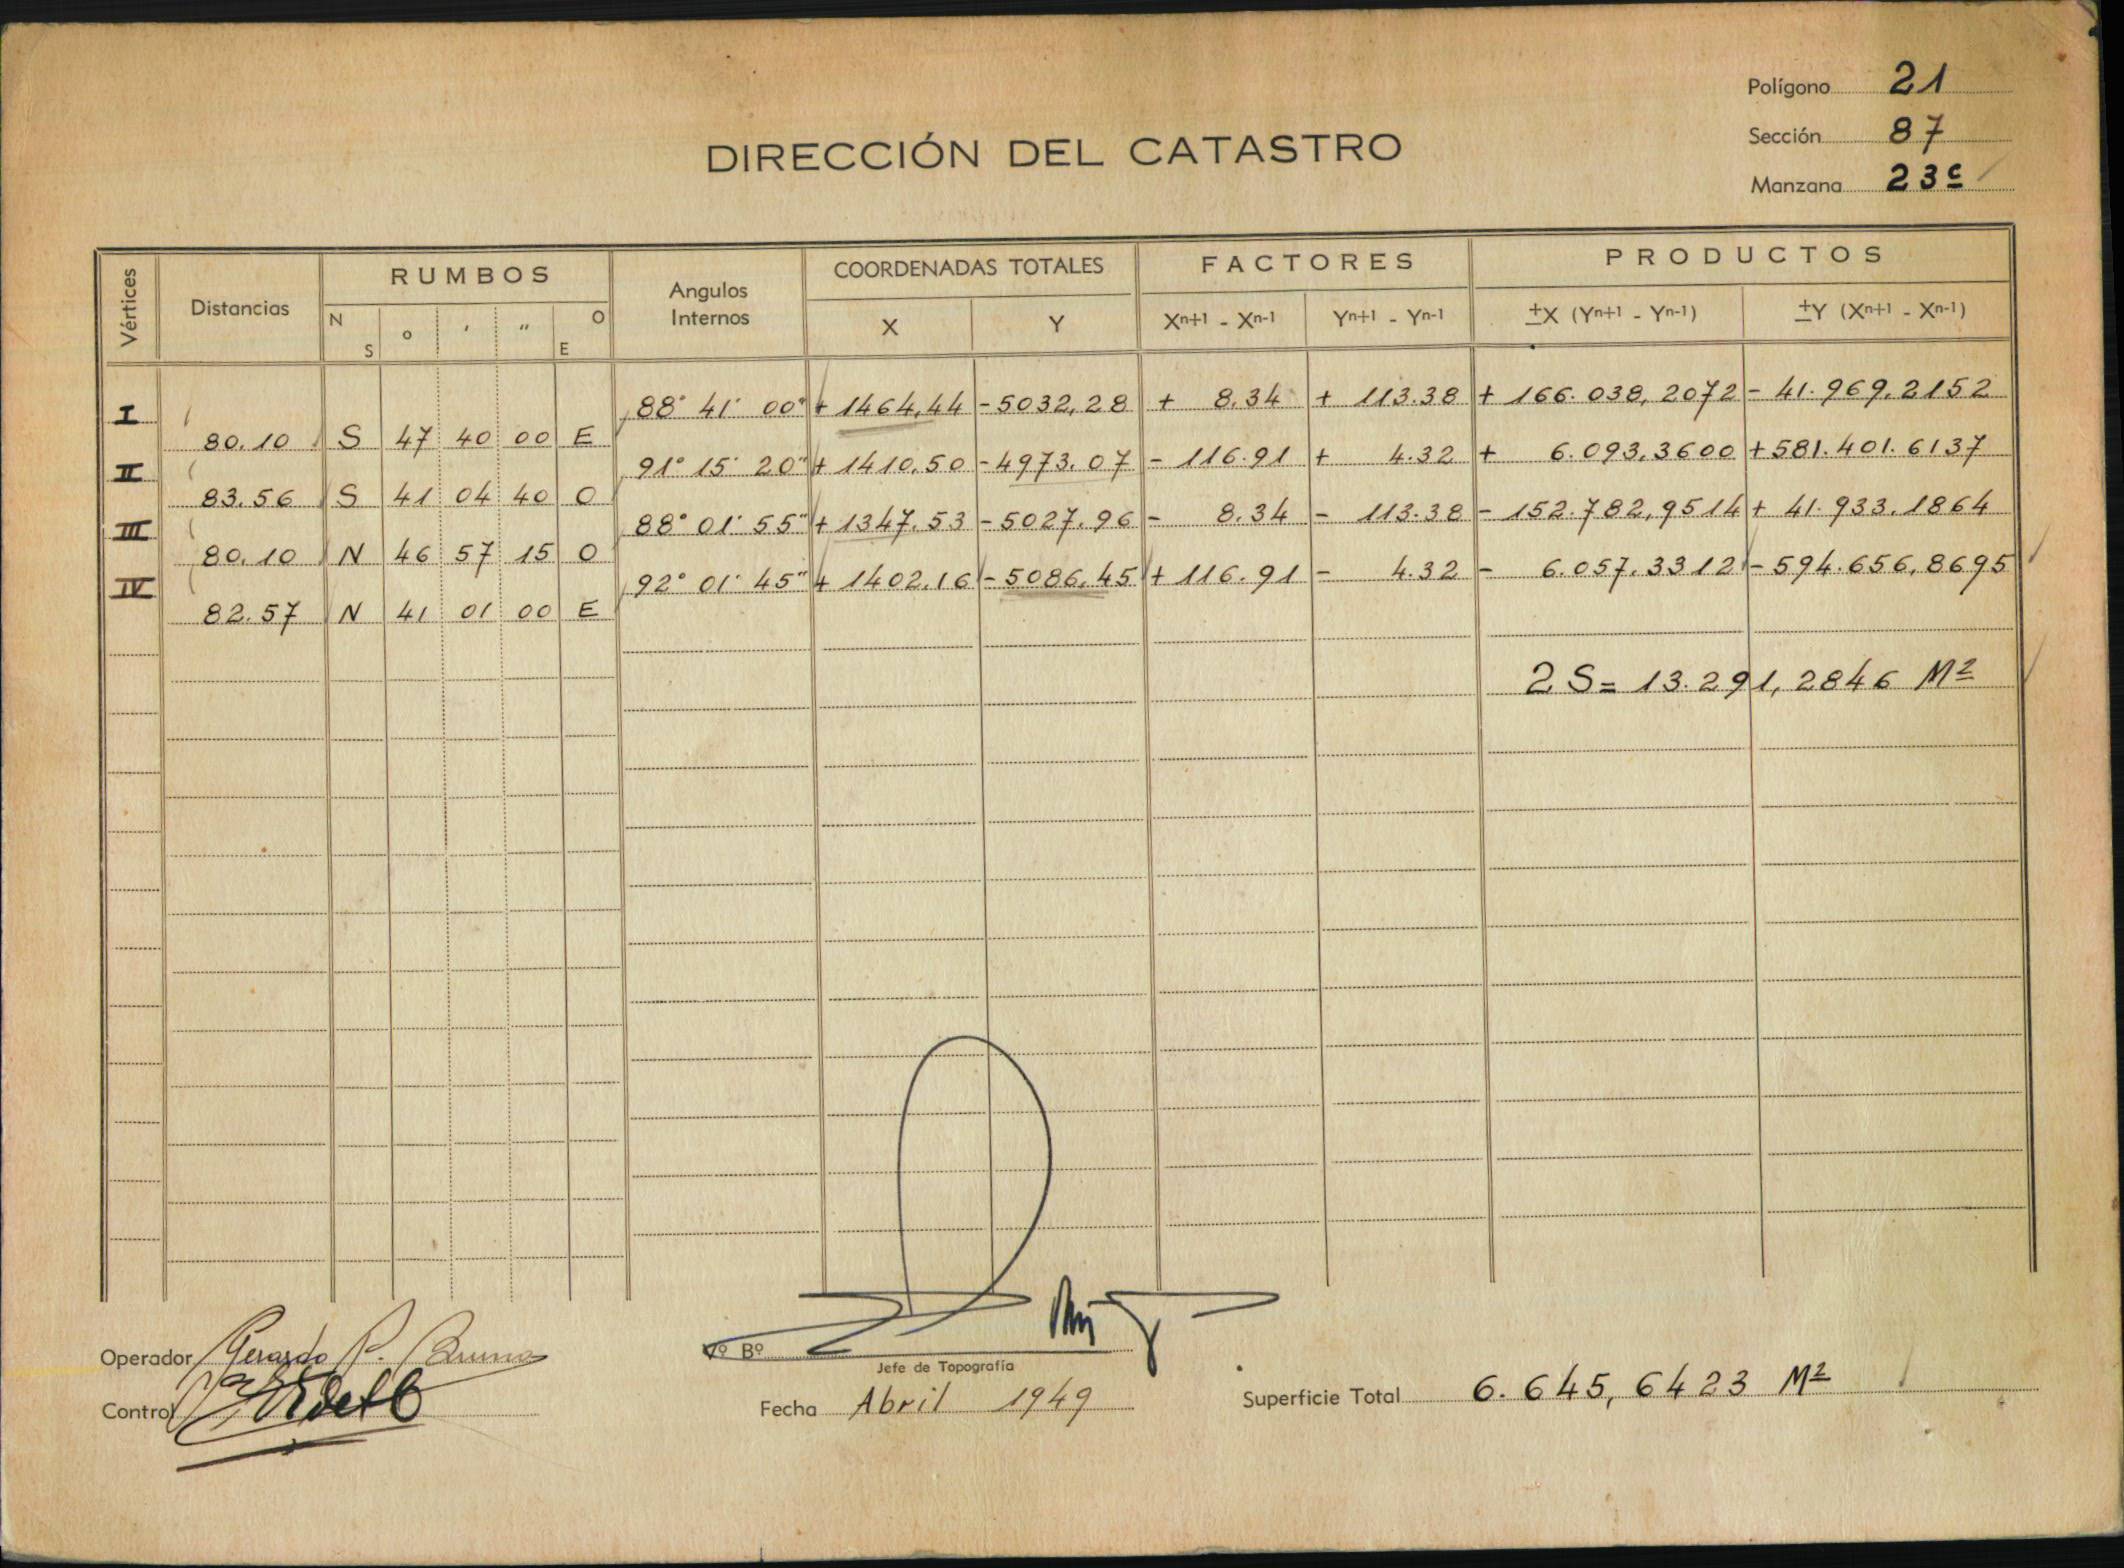 Polígono 21
Sección 87
Manzana 23ᶜ
DIRECCIÓN DEL CATASTRO
Vértices Distancias RUMBOS Angulos Internos COORDENADAS TOTALES FACTORES PRODUCTOS
N S o ′ ″ O E X Y Xn+1 - Xn-1 Yn+1 - Yn-1 ±X (Yn+1 - Yn-1) ±Y (Xn+1 - Xn-1)
I 88° 41' 00" + 1464,44 - 5032,28 + 8.34 + 113.38 + 166.038,2072 - 41.969,2152
80.10 S 47 40 00 E
II 91° 15' 20" + 1410,50 - 4973.07 - 116.91 + 4.32 + 6.093,3600 + 581.401.6137
83.56 S 41 04 40 O
III 88° 01' 55" + 1347.53 - 5027.96 - 8.34 - 113.38 - 152.782,9514 + 41.933.1864
80.10 N 46 57 15 O
IV 92° 01' 45" + 1402.16 - 5086.45 + 116.91 - 4.32 - 6.057.3312 - 594.656,8695
82.57 N 41 01 00 E
2 S = 13.291,2846 M²
Operador Gerardo P.
Control
Vº Bº
Jefe de Topografía
Fecha Abril 1949
Superficie Total 6.645,6423 M²